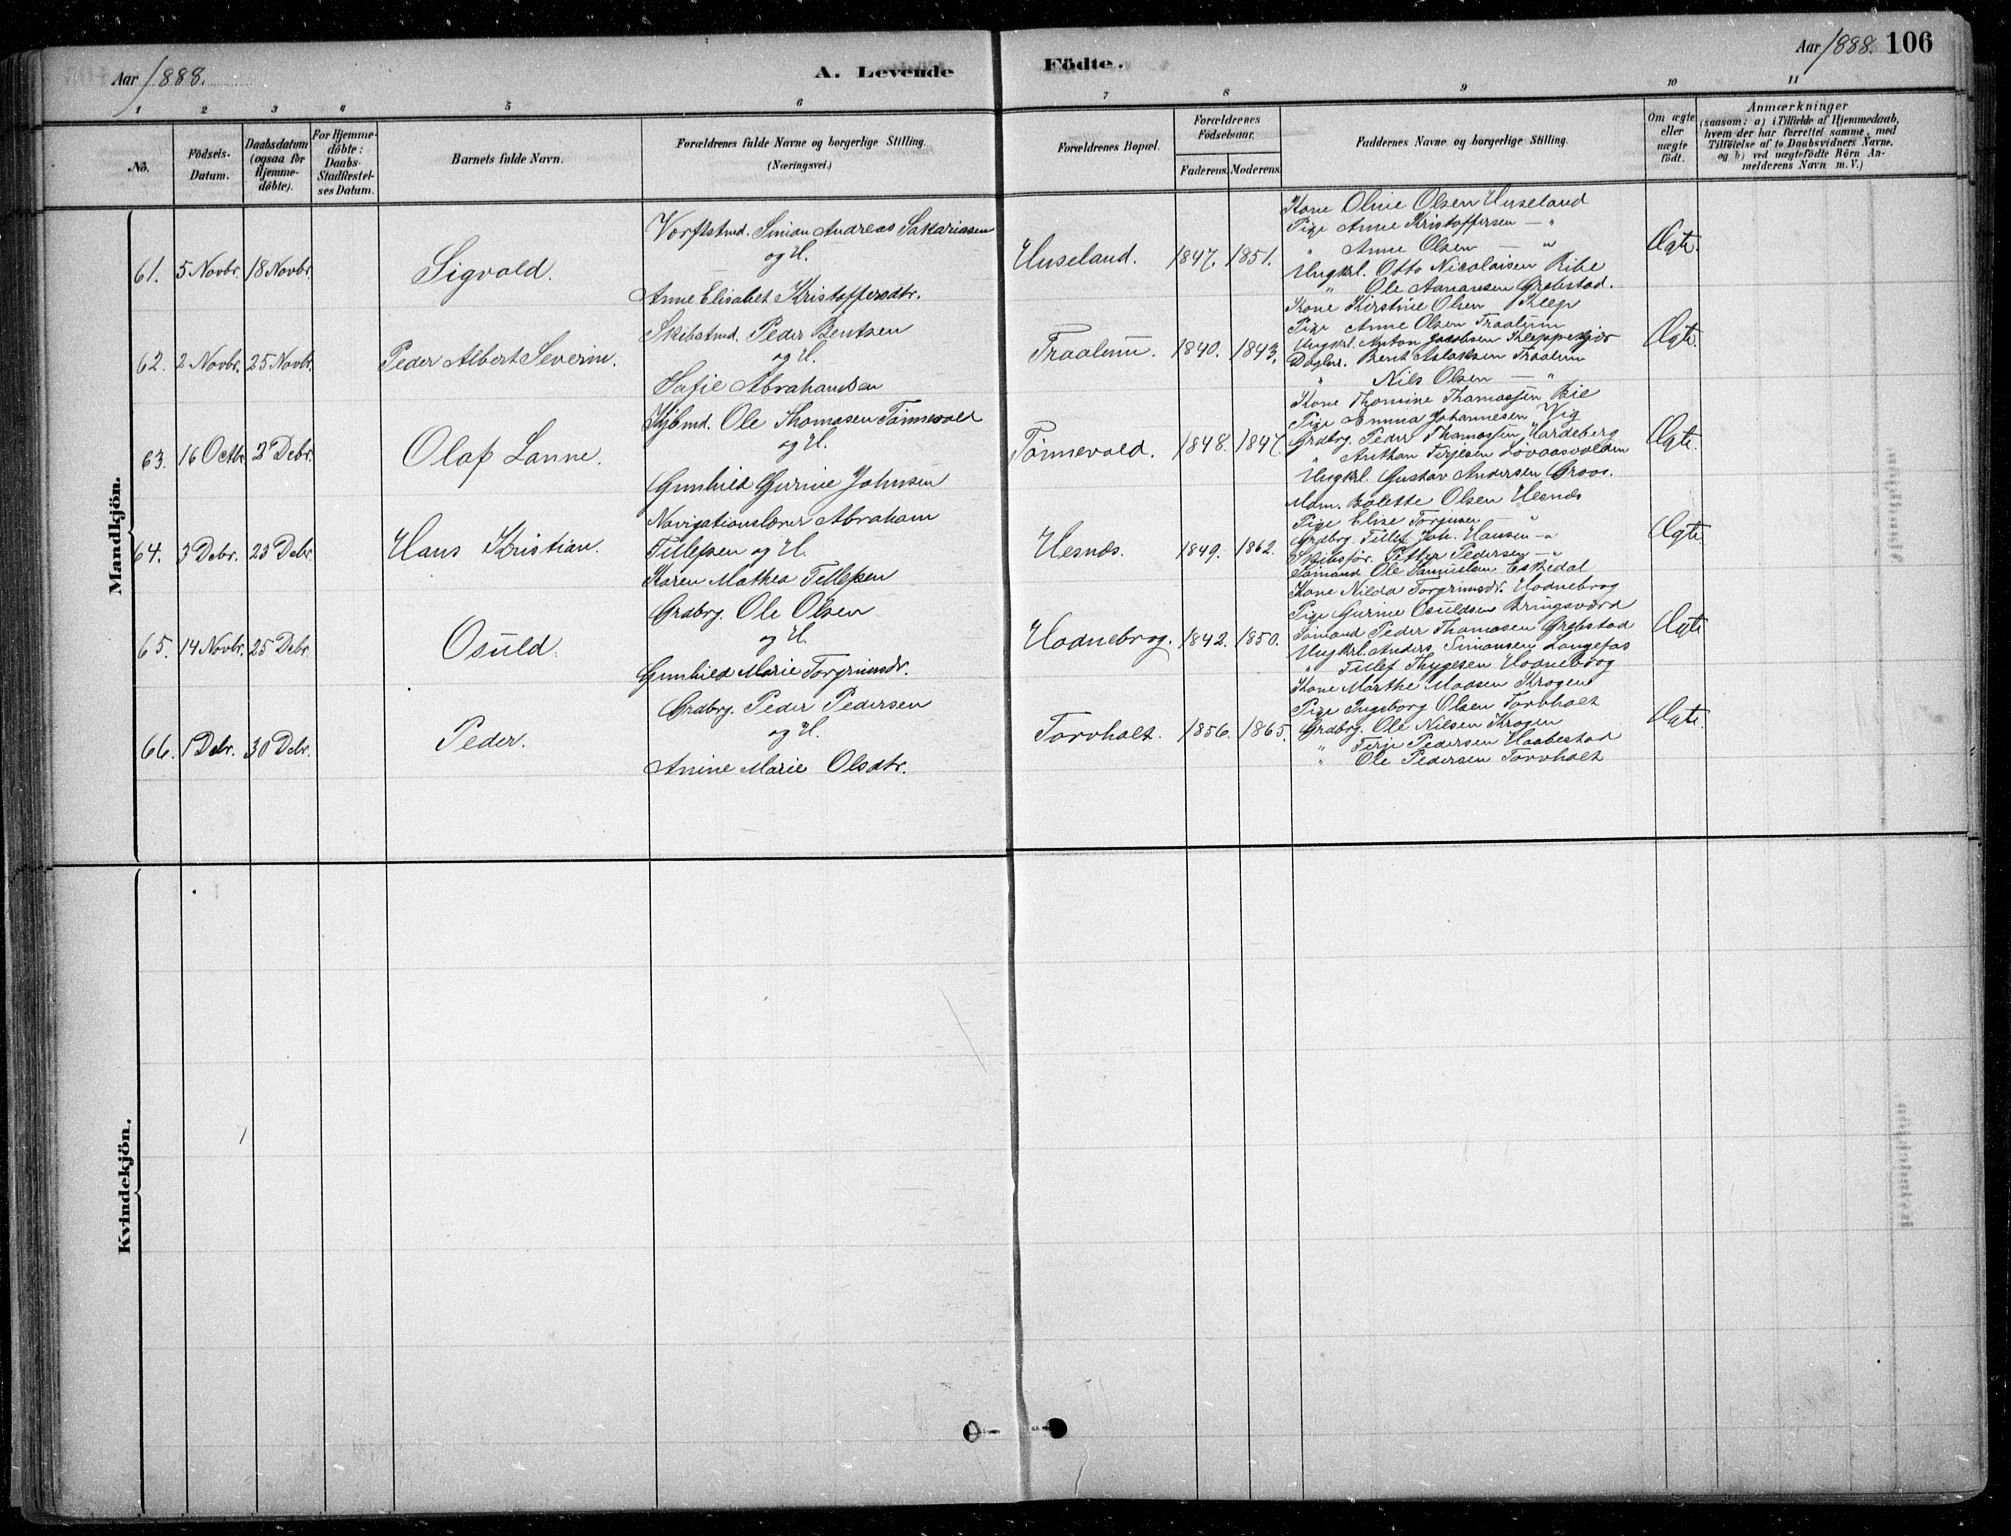 Aar 1888.
A. Levende Födte.
Aar 1888. 106
1 2 3 4 5 6 7 8 9 10 11
No.
Födsels-
Datum.
Daabsdatum
(ogsaa for
Hjemme-
döbte).
For Hjemme-
döbte:
Daabs-
Stadfæstel-
ses Datum.
Barnets fulde Navn.
Forældrenes fulde Navne og borgerlige Stilling.
(Næringsvei.)
Forældrenes Bopæl.
Forældrenes
Födselsaar.
Faderens. Moderens.
Faddernes Navne og borgerlige Stilling.
Om ægte
eller
uægte
födt.
Anmærkninger
(saasom: a) i Tilfælde af Hjemmedaab,
hvem der har forrettet samme, med
Tilföielse af to Daabsvidners Navne,
og b) ved uægtefödte Börn An-
melderens Navn m. V.)
Mandkjön.
61. 5 Novbr. 18 Novbr. Sigvald.
Vorftstmd. Simon Andreas Sakariasen
og H.
Anne Elisabet Kristoffersdtr.
Huseland. 1847. 1851.
Kone Oline Olsen Huseland
Pige Anne Kristoffersen — "
" Anne Olsen — "
Ungkrl. Otto Nicolaisen Bibe
" Ole Aanansen Grebstad.
Ægte.
62. 2 Novbr. 25 Novbr. Peder Albert Severin.
Skibstmd. Peder Bentsen
og H.
Sofie Abrahamsen
Traalum. 1840. 1843.
Kone Kirstine Olsen Kleep
Pige Anne Olsen Traalum
Ungkrl. Anton Jacobsen Kleppekjær
Daglnr. Bent Aslaksen Traalum
" Nils Olsen — "
Ægte.
63. 16 Octbr. 2 Debr. Olaf Lanne.
Kjbmd. Ole Thomasen Tönnevold
og H.
Gunhild Gurine Johnsen
Tønnevold. 1848. 1847.
Kone Thomine Thomassen Bie
Pige Emma Johannesen Vig
Grdbrg. Peder Thomassen Hardeberg
" Anthon Terjesen
Ungkrl. Gustav Andersen Groos.
Ægte.
64. 3 Debr. 23 Debr. Hans Kristian.
Navigationslærer Abraham
Tellefsen og H.
Karen Mathea Tellefsen
Hesnæs. 1849. 1862.
Mdm. Bolette Olsen Hesnæs
Pige Elise Torjusen — "
Grdbrg. Tellef Joh. Hansen — "
Skibsför. Petter Pedersen — "
Sømand Ole Samuelsen Eskedal
Ægte.
65. 14 Novbr. 25 Debr. Osuld.
Grdbrg. Ole Olsen
og H.
Gunhild Marie Torgrimsdr.
Hodnebrog. 1842. 1850.
Kone Nilda Torgrimsdr. Hodnebrog
Pige Gurine Osuldsen Bringsværd
Sømand Peder Thomasen Grebstad
Ungkrl. Anders Simonsen Langefos
" Tellef Thygesen Hodnebrog
Ægte
66. 1 Debr. 30 Debr. Peder.
Grdbrg. Peder Pedersen
og H.
Anine Marie Olsdtr.
Torvholt. 1856. 1865.
Kone Marthe Madsen Krogen
Pige Ingeborg Olsen Torvholt
Grdbrg. Ole Nilsen Krogen
" Terje Pedersen Haabestad
" Ole Pedersen Torvholt
Ægte
Kvindekjön.